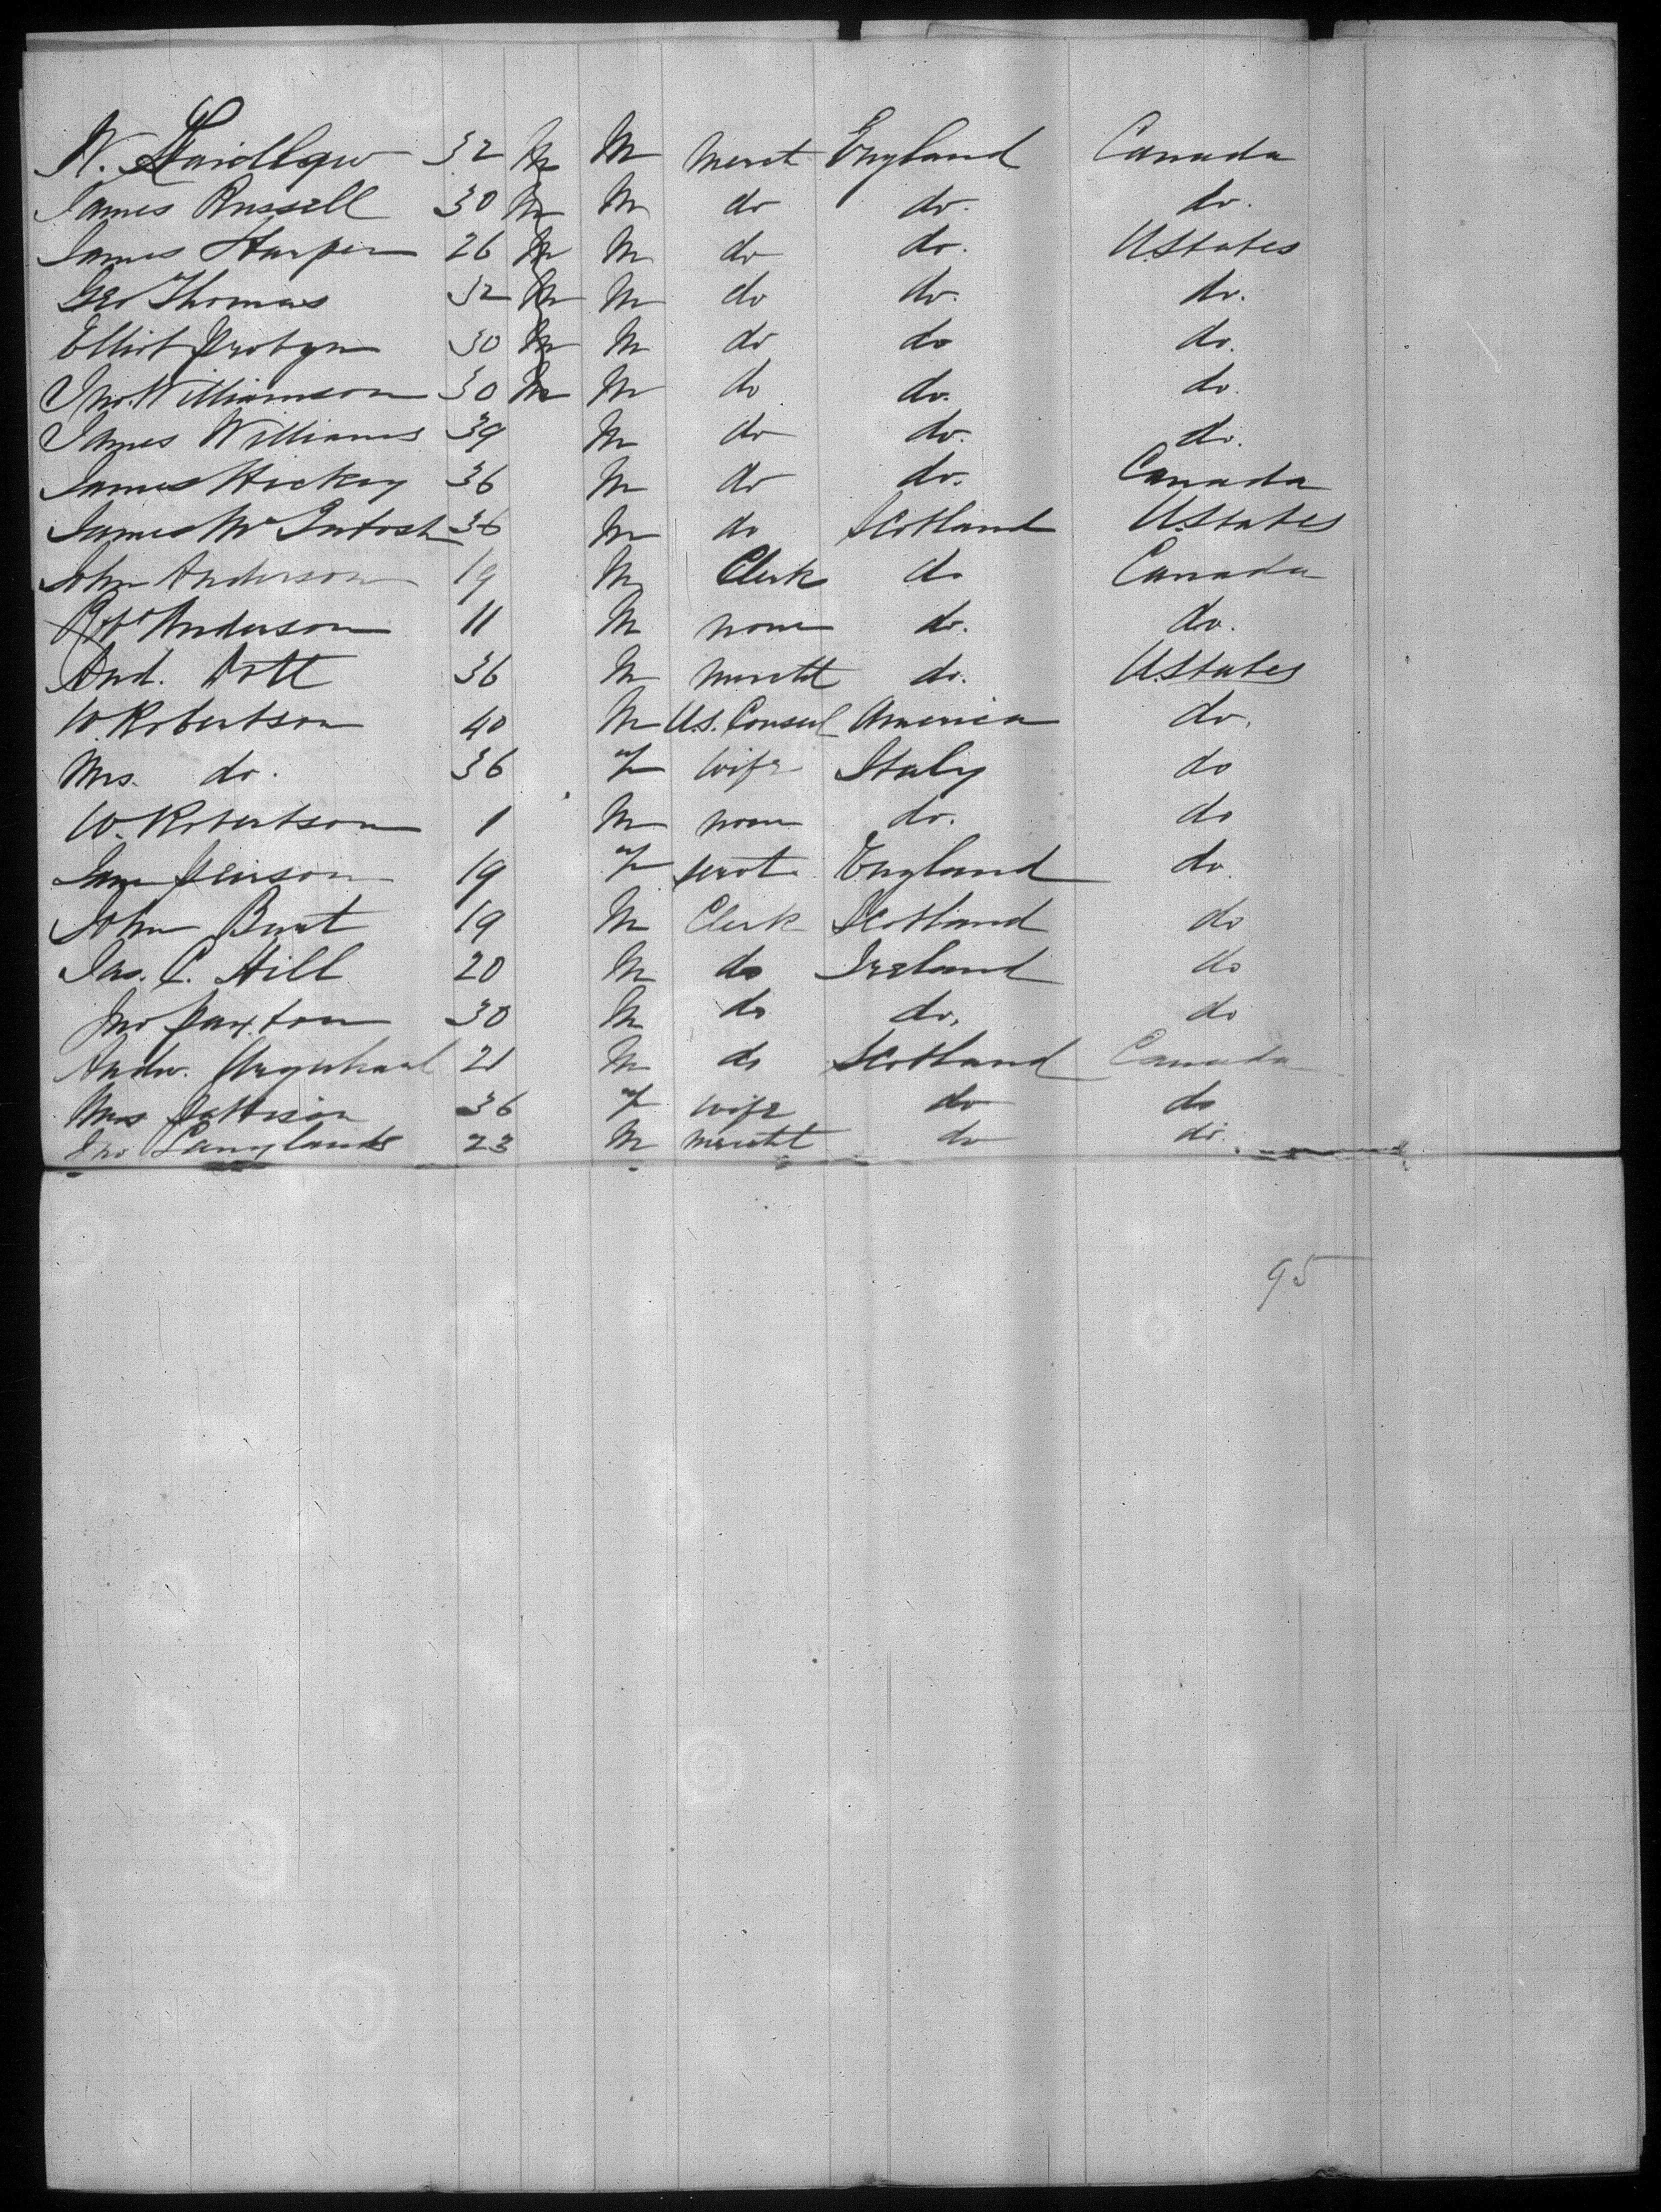 W. Laidlaw 32 M M Mercht England Canada
James Russell 30 M M do do. do.
James Harper 26 M M do do. U.States
Geo Thomas 32 M M do do. do.
Elliot Probyn 30 M M do do do.
Jno. Williamson 30 M M do do. do.
James Williams 39 M do do. do.
James Hickey 36 M do do. Canada
James McIntosh 36 M do Scotland U.States
John Anderson 19 M Clerk do Canada
Rob Anderson 11 M none do. do.
And. Dott 36 M mercht do. U.States
W. Robertson 40 M U.S. Consul America do.
Mrs. do. 36 f wife Italy do
W. Robertson 1 M none do. do
Jane 19 f servt England do.
John Burt 19 M Clerk Scotland do
Jas. C. Hill 20 M do Ireland do
Jno Paxton 30 M do do. do
Andw. Urquhart 21 M do Scotland Canada
Mrs Pattison 36 f wife do do
Jno Langlands 23 M mercht do do.
95